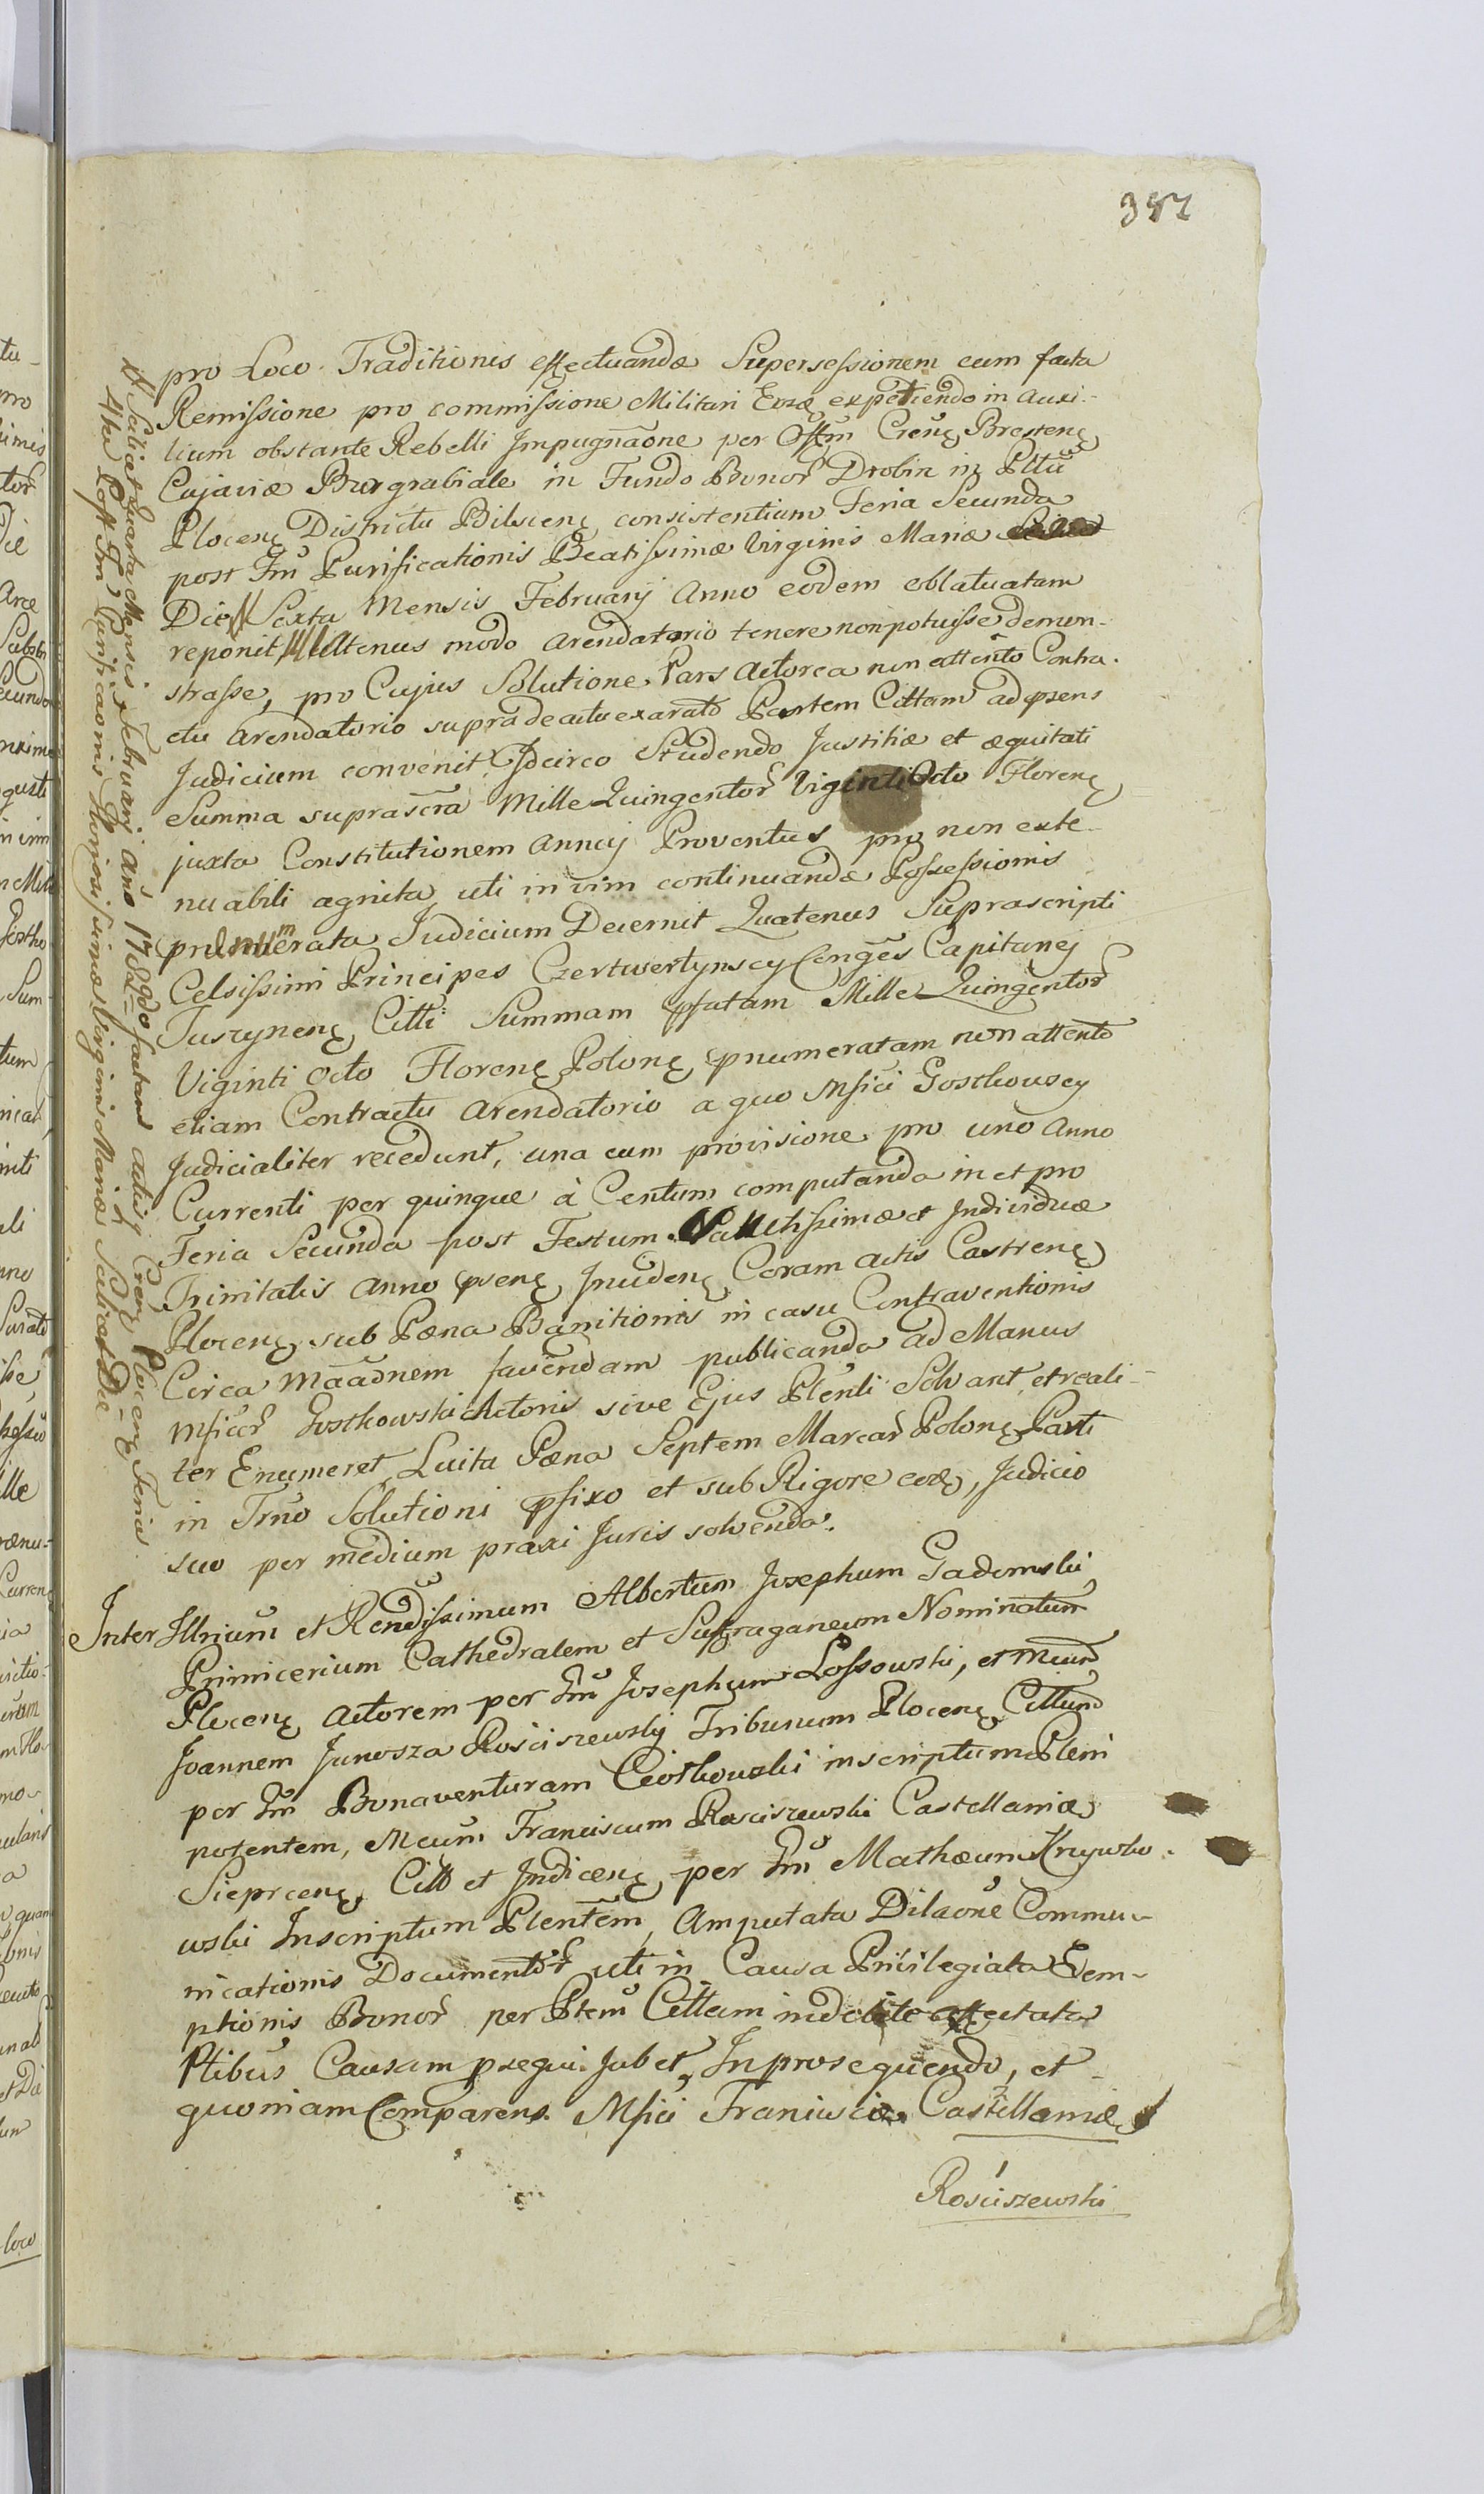 387
pro Loco Traditionis effectuandæ Supersessionem cum facta
Remissione pro commissione Militari Eoræ expetiendo in auxi-
lium obstante Rebelli Impugnãone per Offm Crenę Brestenę
Cujaviæ Burgrabiale in Fundo Bonoř Drobin in Pltũ
Plocenę Districtu Bilscenę consistentium Feria Secunda
post Fm̃ Purificationis Beatissimæ Virginis Mariæ
Die // Sexta Mensis Februarij Anno eodem oblatuatam
reponit Ultenus modo arendatorio tenere non potuisse demon-
strasse, pro Cujus Solutione Pars Actorea non attento Contra-
ctu Arendatorio supra de actu exarato Partem Cittam ad psens
Judicium convenit, Idcirco Studendo Justitiæ et æquitati
Summa suprascra Mille Quingentoř Viginti Octo Florenę
juxta Constitutionem annuj Proventus pro non exte-
nuabili agnita, uti in vim continuandæ Possessionis
prænumerata Judicium Decernit Quatenus Suprascripti
Celsissimi Principes Czertwertynscy Conges Capitanej
Juszynenę Citti Summam pfatam Mille Quingentoř
Viginti Octo Florenę Polonę pnumeratam non attento
etiam Contractu Arendatorio a quo Mfici Gostkowscy
Judicialiter recedunt, una cum provisione pro uno Anno
Currenti per quinque à Centum computanda in et pro
Feria Secunda post Festum Sanctissimæ et Individuæ
Trinitatis Anno psenę Incidenę Coram actis Castrenę
Plocenę sub Pæna Banitionis in casu Contraventionis
Circa Maãdnem favendam publicanda ad Manus
Mficoř Gostkowski Actoris sive Ejus Plenti Solvant, et reali-
ter Enumeret, Luita Pæna Septem Marcař Polonę Parti
in Trno Solutioni pfixo et sub Rigore eoræ, Judicio
suo per medium praxi Juris solvenda.
Inter Illrium et Rendissimum Albertum Josephum Gadomski
Primicerium Cathedralem et Suffraganeum Nominatum
Plocenę Actorem per Gm Josephum Lossowski, et Mcum
Joannem Junosza Rościszewskij Tribunum Plocenę Cittum
per Gm Bonaventuram Ciotkowski inscriptum Pleni
potentem, Mcum Franciscum Rosciszewski Castellaniæ
Sieprcenę, Citt et Indicenę per Gm Mathæum Krzywko-
wski Inscriptum Plentem, Amputata Dilaoñe Commu-
nicationis Documentoř uti in Causa Privilegiata Exem-
ptionis Bonoř per Ptem Cittam indebite affectata
Ptibus Causam psequi Jubet, In prosequendo, et
quoniam Comparens Mfici Francisci Castellaniæ
Rosciszewski
# Scilicet Quarta Mensis Februarij Añ 1782do factam actisq Crenę Plocenę Feria
4ta Post Fm Purificaonis Gloriosissimæ Virginis Mariæ Scilicet Die